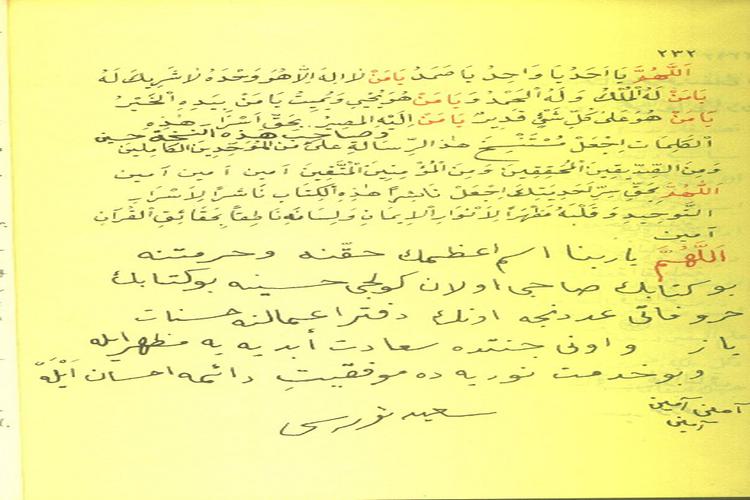 ٢٣٢
اَللّٰهُمَّ يَا اَحَدُ يَا وَاحِدُ يَا صَمَدُ يَا مَنْ لَا اِلٰهَ اِلَّا هُوَ وَحْدَهُ لَا شَرِيكَ لَهُ
يَا مَنْ لَهُ الْمُلْكُ وَلَهُ الْحَمْدُ وَيَا مَنْ هُوَ يُحْيِي وَيُمِيتُ يَا مَنْ بِيَدِهِ الْخَيْرُ
يَا مَنْ هُوَ عَلٰى كُلِّ شَيْءٍ قَدِيرٌ يَا مَنْ اِلَيْهِ الْمَصِيرُ بِحَقِّ اَسْرَارِ هٰذِهِ
وصاحب هذه النسخة حسين
اَلْكَلِمَاتِ اِجْعَلْ مُسْتَنْسِخَ هٰذَا الرِّسَالَةِ مِنَ الْمُوَحِّدِينَ الْكَامِلِينَ
وَمِنَ الصِّدِّيقِينَ الْمُحَقِّقِينَ وَمِنَ الْمُؤْمِنِينَ الْمُتَّقِينَ آمِينَ آمِينَ آمِينَ
اَللّٰهُمَّ بِحَقِّ سِرِّ اَحَدِيَّتِكَ اِجْعَلْ نَاشِرًا هٰذِهِ الْكِتَابِ نَاشِرًا لِاَسْرَارِ
التَّوْحِيدِ وَقَلْبَهُ مَظْهَرًا لِاَنْوَارِ الْاِيمَانِ وَلِسَانَهُ نَاطِقًا بِحَقَائِقِ الْقُرْآنِ
آمين
اَللّٰهُمَّ يا ربنا اسم اعظمك حقّنه و حرمتنه
بو كتابك صاحبى اولان كولجى حسينه بو كتابك
حروفاتى عددنجه اونك دفتر اعمالنه حسنات
ياز و اونى جنتده سعادت أبديه يه مظهر ايله
و بو خدمت نوريه ده موفقيتِ دائمه احسان ايْلَهْ
آمين آمين آمين
سعيد نورسى